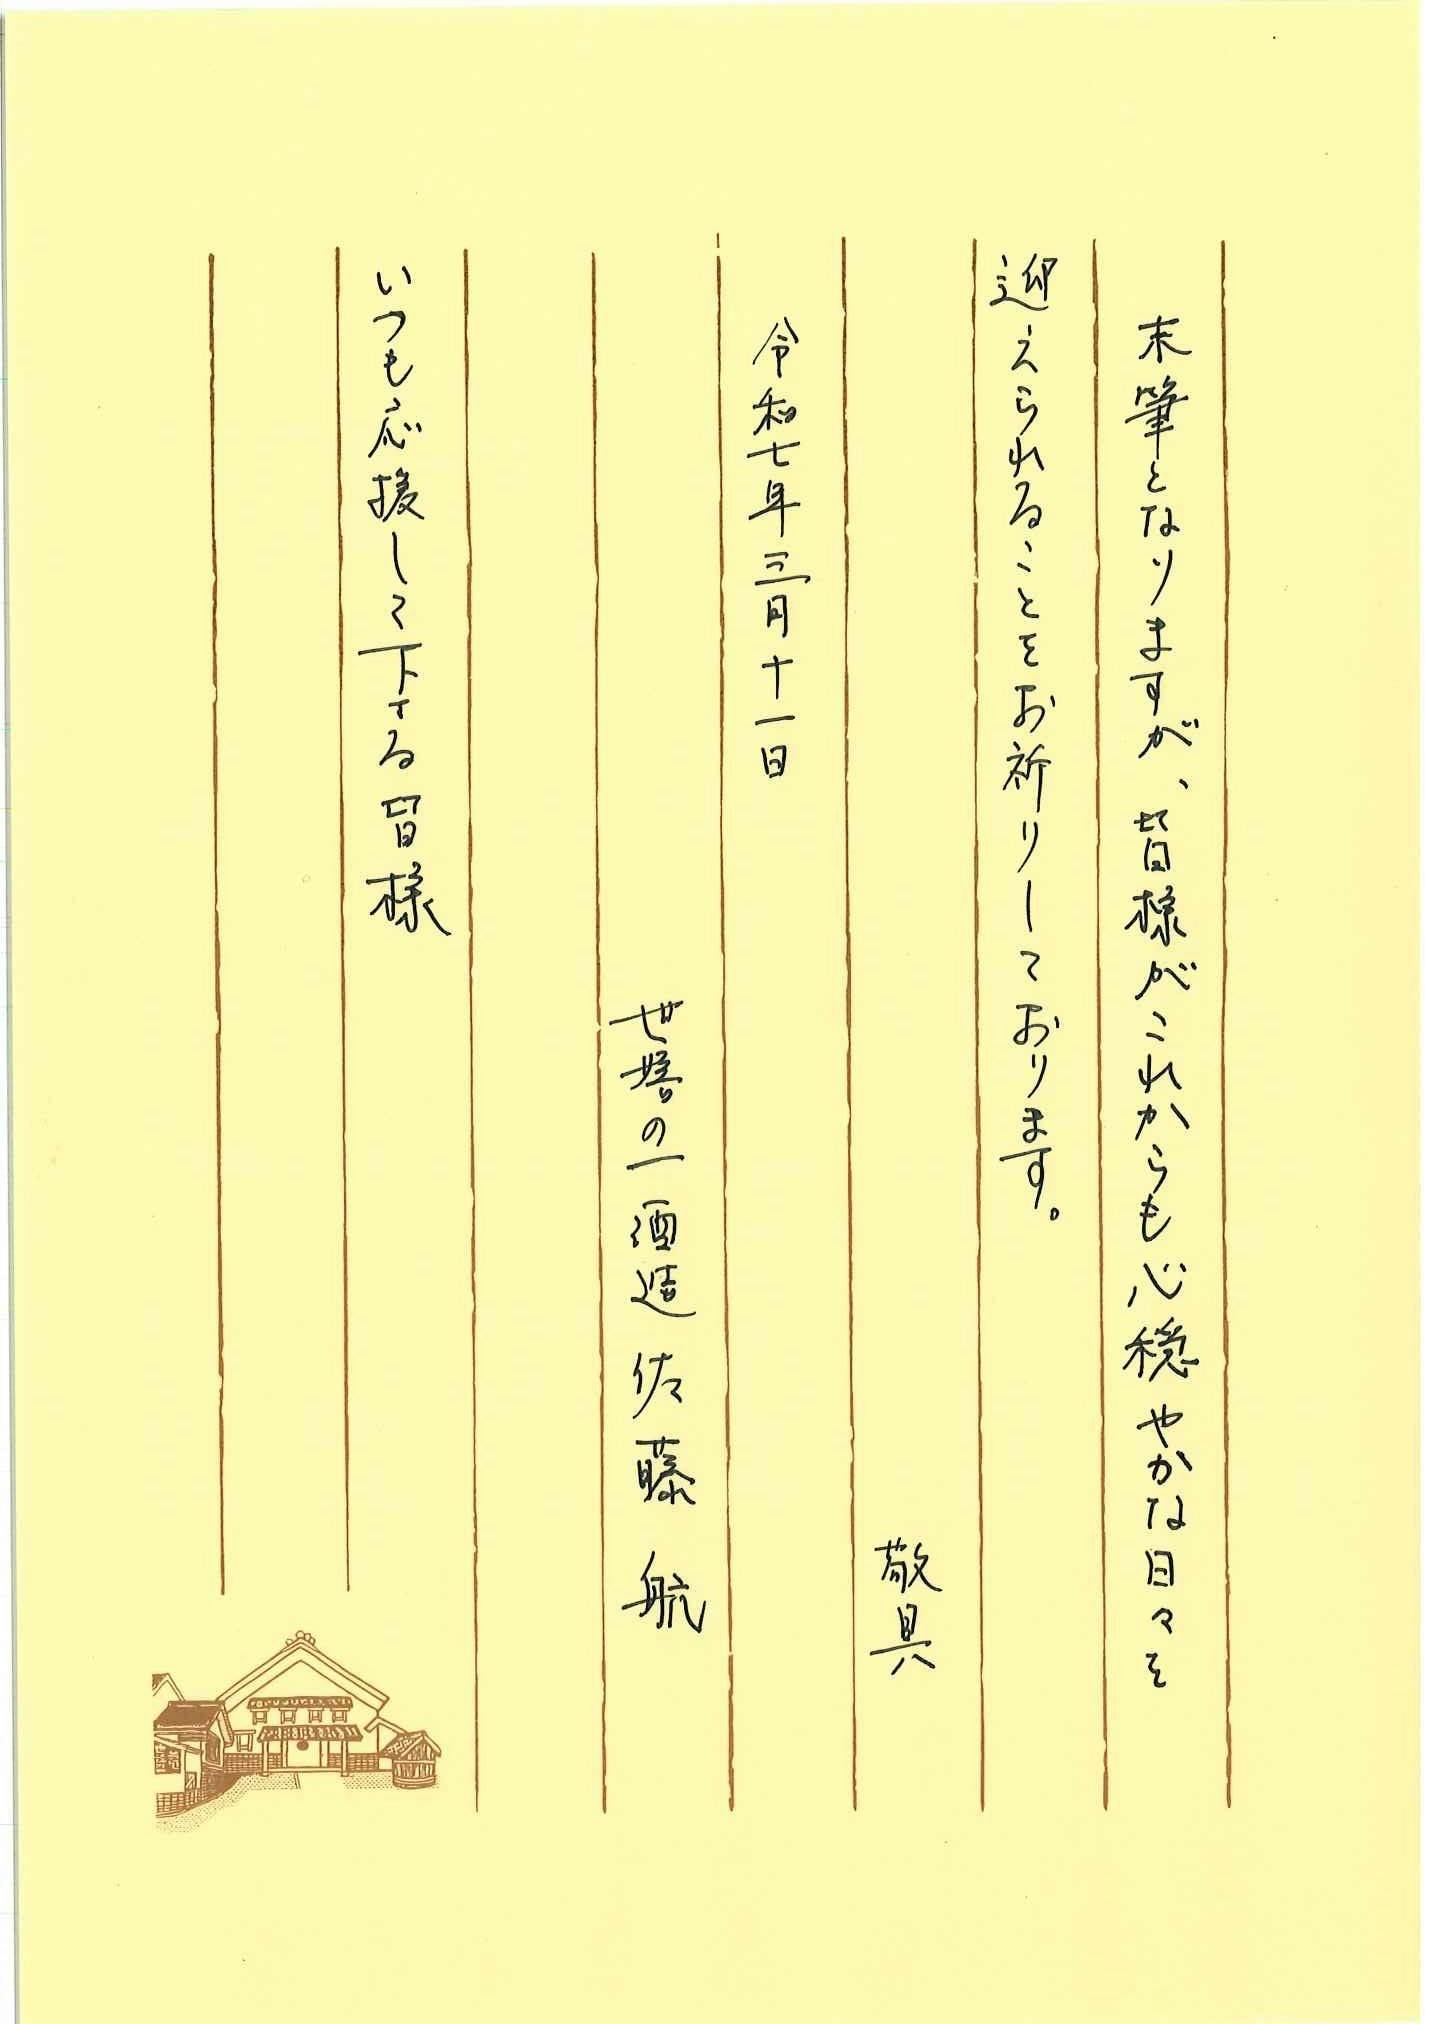 末筆となりますが、皆様がこれからも心穏やかな日々を
迎えられることをお祈りしております。
敬具
令和七年三月十一日
世嬉の一酒造 佐藤 航
いつも応援して下さる皆様